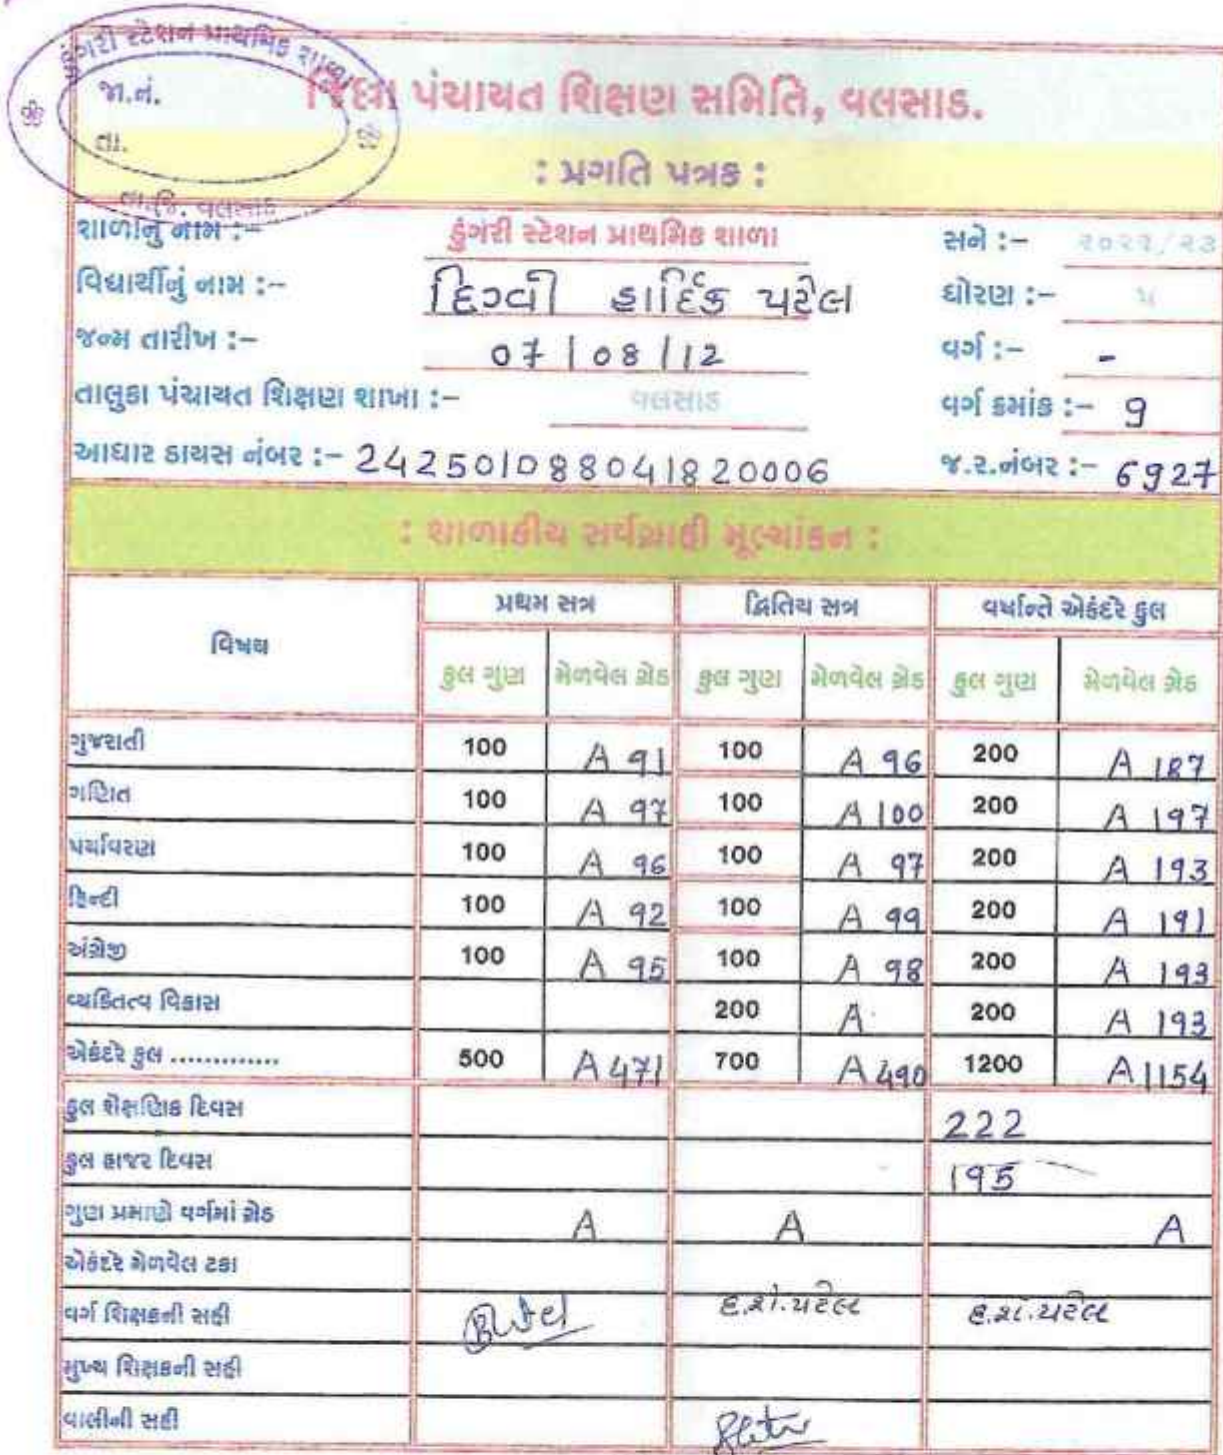 ડુંગરી સ્ટેશન પ્રાથમિક શાળા
જા.નં.
તા.
તા.જિ. વલસાડ
જિલ્લા પંચાયત શિક્ષણ સમિતિ, વલસાડ.
: પ્રગતિ પત્રક :
શાળાનું નામ :- ડુંગરી સ્ટેશન પ્રાથમિક શાળા સને :- ૨૦૨૨/૨૩
વિદ્યાર્થીનું નામ :- હાર્દિક પટેલ ધોરણ :- ૫
જન્મ તારીખ :- 07/08/12 વર્ગ :- -
તાલુકા પંચાયત શિક્ષણ શાખા :- વલસાડ વર્ગ ક્રમાંક :- 9
આધાર ડાયસ નંબર :- 242501088041820006 જ.ર.નંબર :- 6927
: શાળાકીય સર્વગ્રાહી મૂલ્યાંકન :
વિષય પ્રથમ સત્ર દ્વિતિય સત્ર વર્ષાન્તે એકંદરે કુલ
કુલ ગુણ મેળવેલ ગ્રેડ કુલ ગુણ મેળવેલ ગ્રેડ કુલ ગુણ મેળવેલ ગ્રેડ
ગુજરાતી 100 A 91 100 A 96 200 A 187
ગણિત 100 A 97 100 A 100 200 A 197
પર્યાવરણ 100 A 96 100 A 97 200 A 193
હિન્દી 100 A 92 100 A 99 200 A 191
અંગ્રેજી 100 A 95 100 A 98 200 A 193
વ્યકિતત્વ વિકાસ 200 A 200 A 193
એકંદરે કુલ ............. 500 A 471 700 A 490 1200 A 1154
કુલ શૈક્ષણિક દિવસ 222
કુલ હાજર દિવસ 195
ગુણ પ્રમાણે વર્ગમાં ગ્રેડ A A A
એકંદરે મેળવેલ ટકા
વર્ગ શિક્ષકની સહી હ.શં.પટેલ હ.શં.પટેલ
મુખ્ય શિક્ષકની સહી
વાલીની સહી